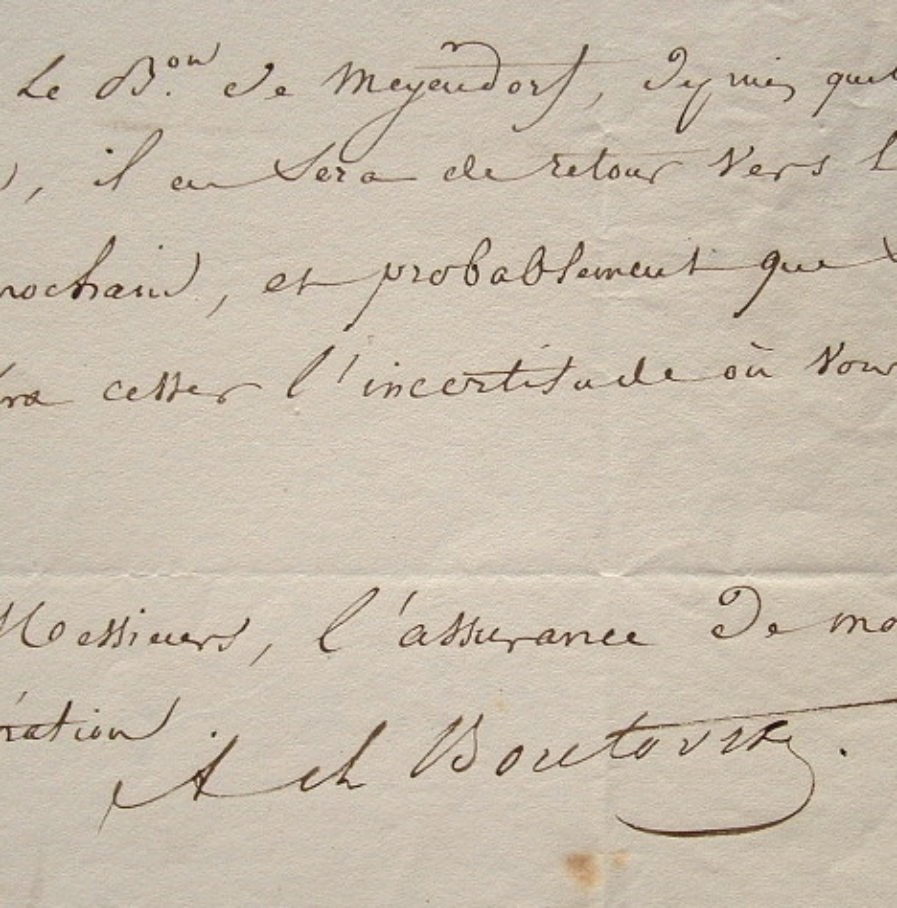 Le B.on de Meyendorf, depuis quel
, il en sera de retour vers l
rochain, et probablement que
ra cesser l'incertitude où vous
Messieurs, l'assurance de mo
ération.
A ch Boutovsky.